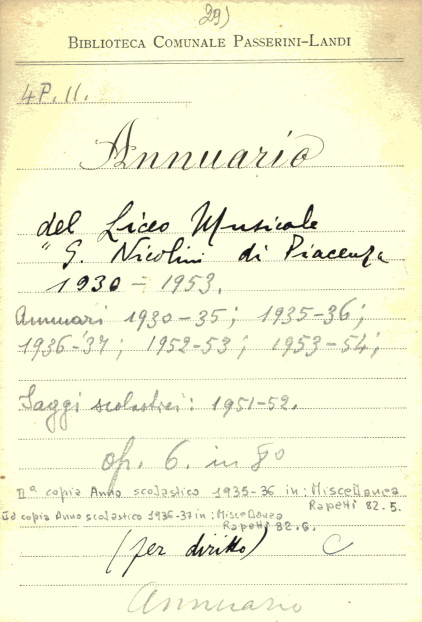 29)
BIBLIOTECA COMUNALE PASSERINI-LANDI
4P.II.
Annuario
del Liceo Musicale
"G. Nicolini di Piacenza
1930 - 1953.
Annuari 1930-35; 1935-36;
1936-'37; 1952-53; 1953-54;
Saggi scolastici: 1951-52.
op. 6. in 8°
IIª copia Anno scolastico 1935-36 in: Miscellanea
Rapetti 82.5.
IIª copia Anno scolastico 1936-37 in: Miscellanea
Rapetti 82.6.
(per diritto) C
Annuario